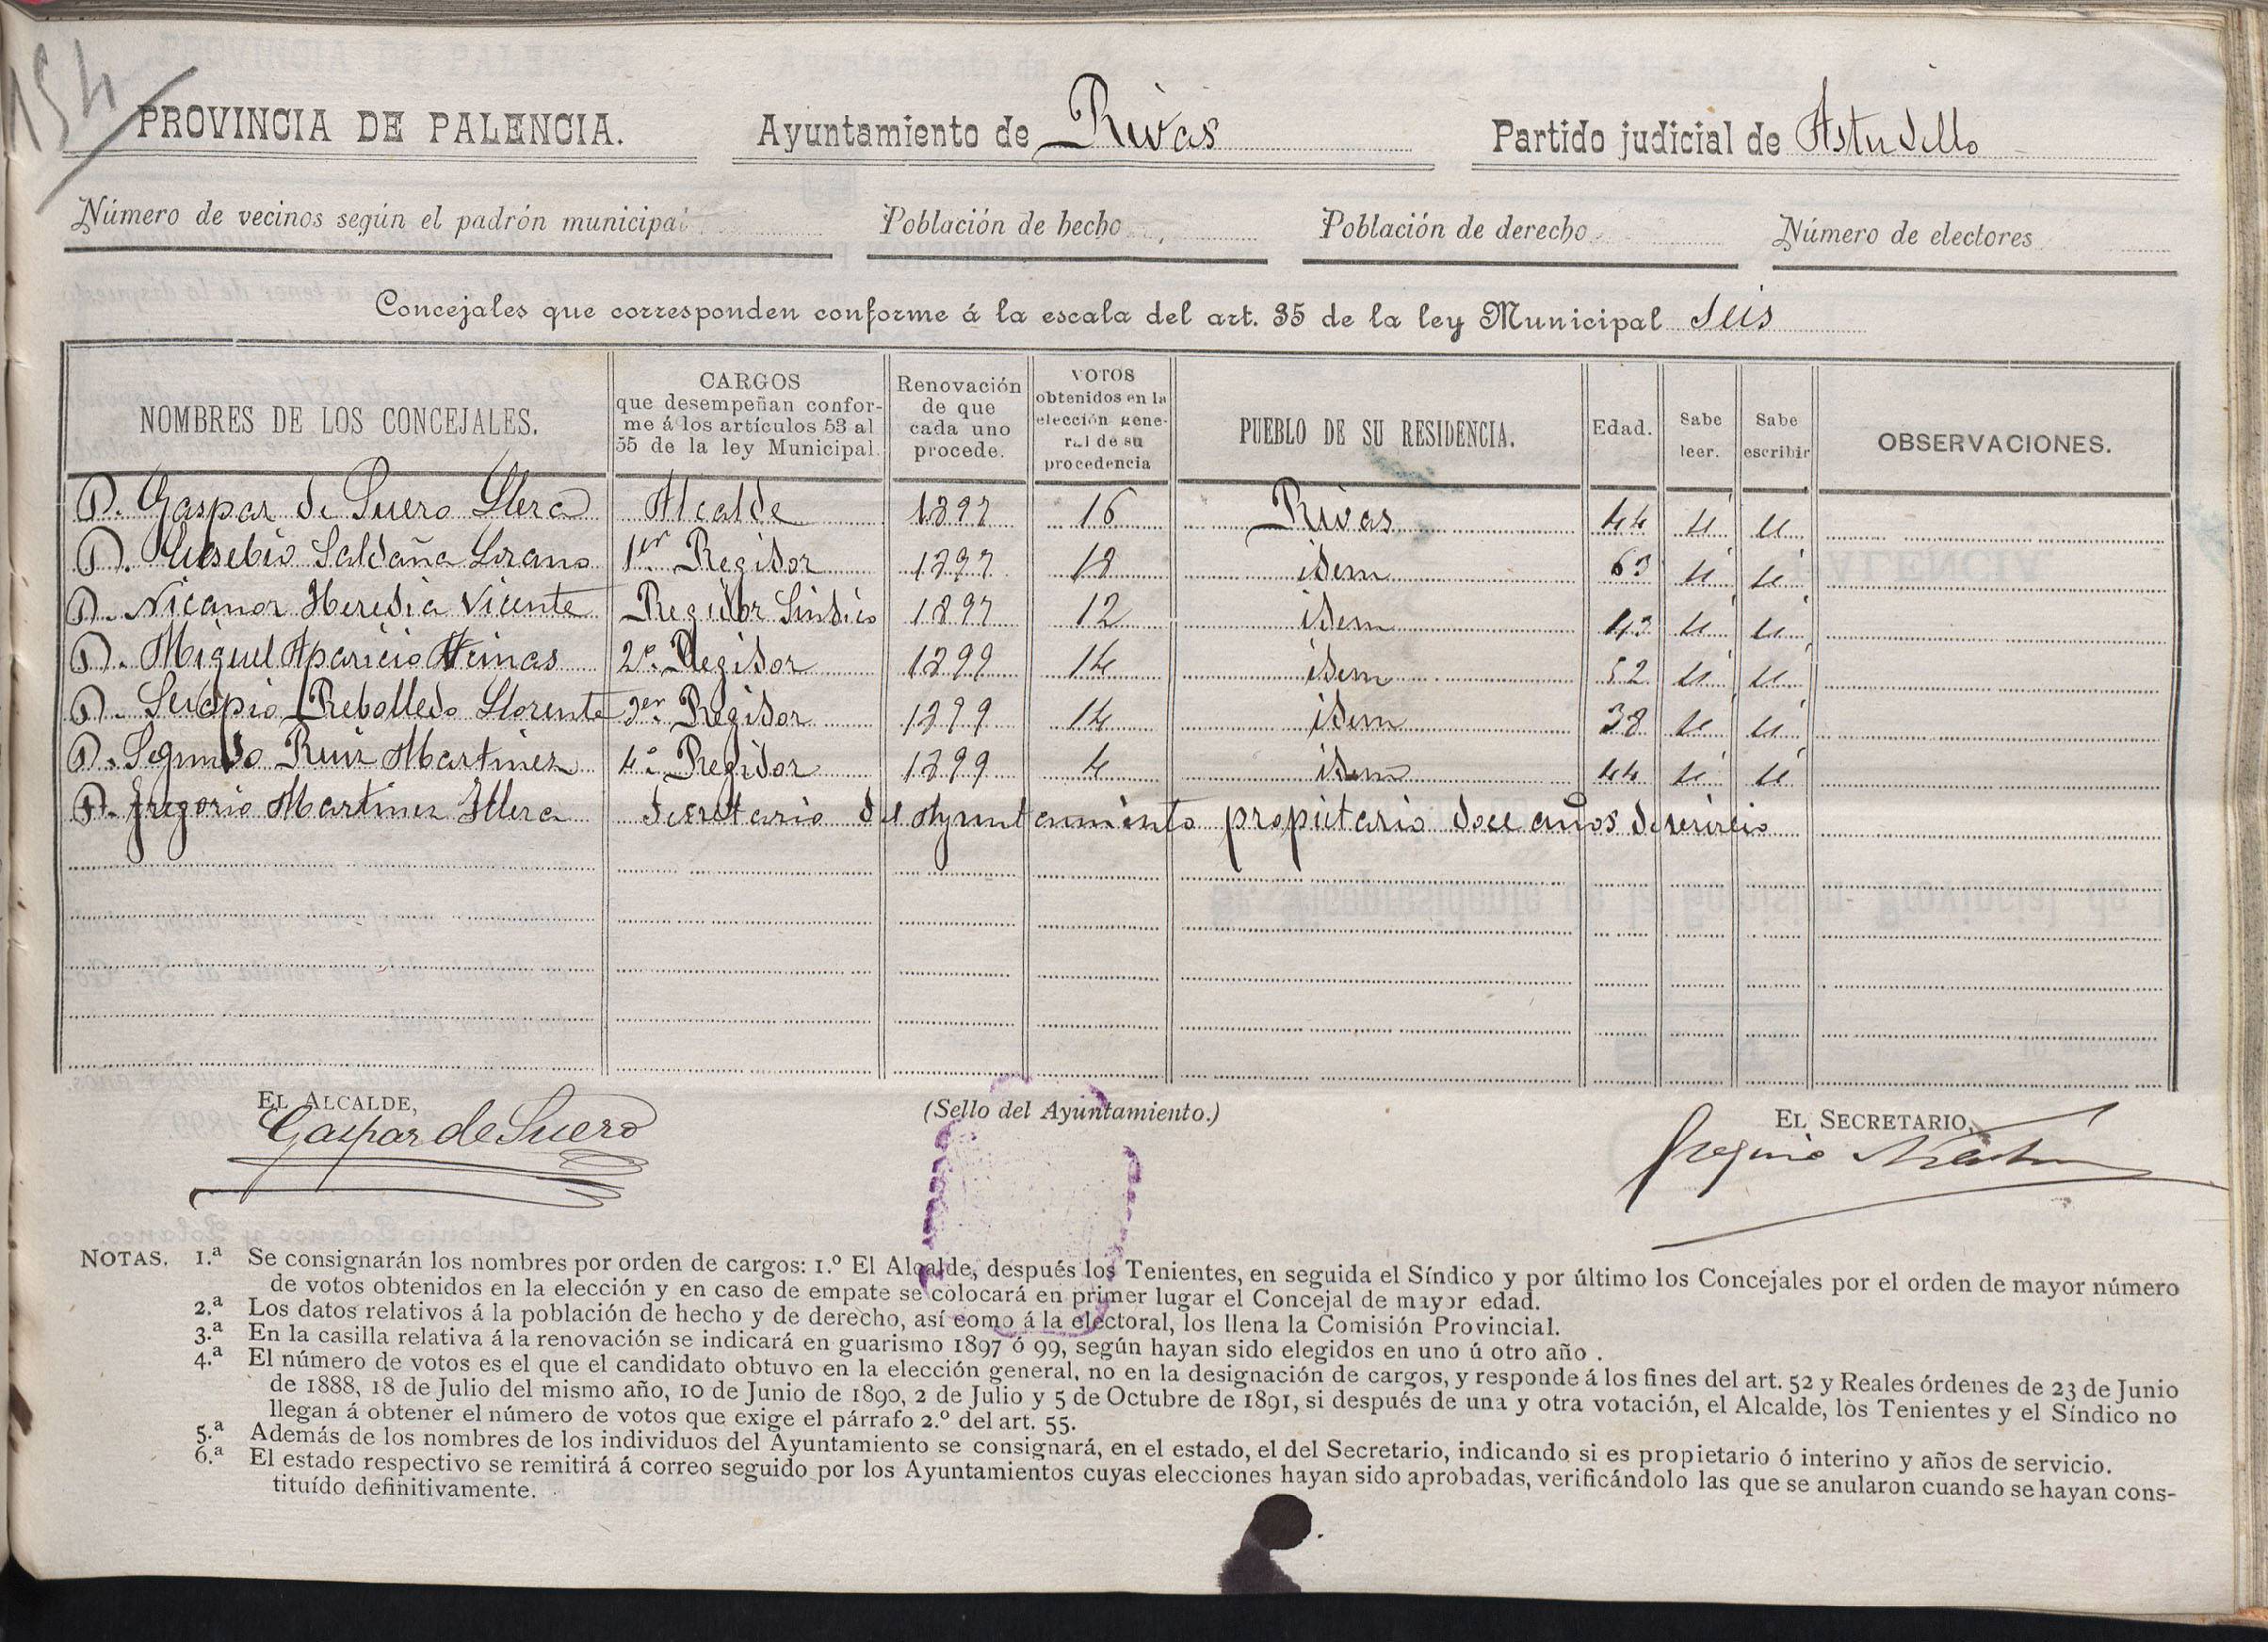 154
PROVINCIA DE PALENCIA. Ayuntamiento de Rivas Partido judicial de Astudillo
Número de vecinos según el padrón municipal Población de hecho Población de derecho Número de electores
Concejales que corresponden conforme á la escala del art. 35 de la ley Municipal Seis
NOMBRES DE LOS CONCEJALES. CARGOS que desempeñan confor- me á los artículos 53 al 55 de la ley Municipal. Renovación de que cada uno procede. VOTOS obtenidos en la elección gene- ral de su procedencia PUEBLO DE SU RESIDENCIA. Edad. Sabe leer. Sabe escribir OBSERVACIONES.
D. Gaspar de Suero Llera Alcalde 1897 16 Rivas 44 si si
D. Eusebio Saldaña Lozano 1er Regidor 1897 18 idem 63 si si
D. Nicanor Heredia Vicente Regidor Sindico 1897 12 idem 43 si si
D. Miguel Aparicio Heinas 2º Regidor 1899 14 idem 52 si si
D. Serapio Rebolledo Llorente 3er Regidor 1899 14 idem 38 si si
D. Segundo Ruiz Martinez 4º Regidor 1899 4 idem 44 si si
D. Gregorio Martinez Illera Secretario del Ayuntamiento propietario doce años de servicio
EL ALCALDE, (Sello del Ayuntamiento.) EL SECRETARIO,
Gaspar de Suero Gregorio Martinez
NOTAS. 1.ª Se consignarán los nombres por orden de cargos: 1.º El Alcalde, después los Tenientes, en seguida el Síndico y por último los Concejales por el orden de mayor número
de votos obtenidos en la elección y en caso de empate se colocará en primer lugar el Concejal de mayor edad.
2.ª Los datos relativos á la población de hecho y de derecho, así como á la electoral, los llena la Comisión Provincial.
3.ª En la casilla relativa á la renovación se indicará en guarismo 1897 ó 99, según hayan sido elegidos en uno ú otro año .
4.ª El número de votos es el que el candidato obtuvo en la elección general, no en la designación de cargos, y responde á los fines del art. 52 y Reales órdenes de 23 de Junio
de 1888, 18 de Julio del mismo año, 10 de Junio de 1890, 2 de Julio y 5 de Octubre de 1891, si después de una y otra votación, el Alcalde, los Tenientes y el Síndico no
llegan á obtener el número de votos que exige el párrafo 2.º del art. 55.
5.ª Además de los nombres de los individuos del Ayuntamiento se consignará, en el estado, el del Secretario, indicando si es propietario ó interino y años de servicio.
6.ª El estado respectivo se remitirá á correo seguido por los Ayuntamientos cuyas elecciones hayan sido aprobadas, verificándolo las que se anularon cuando se hayan cons-
tituído definitivamente.